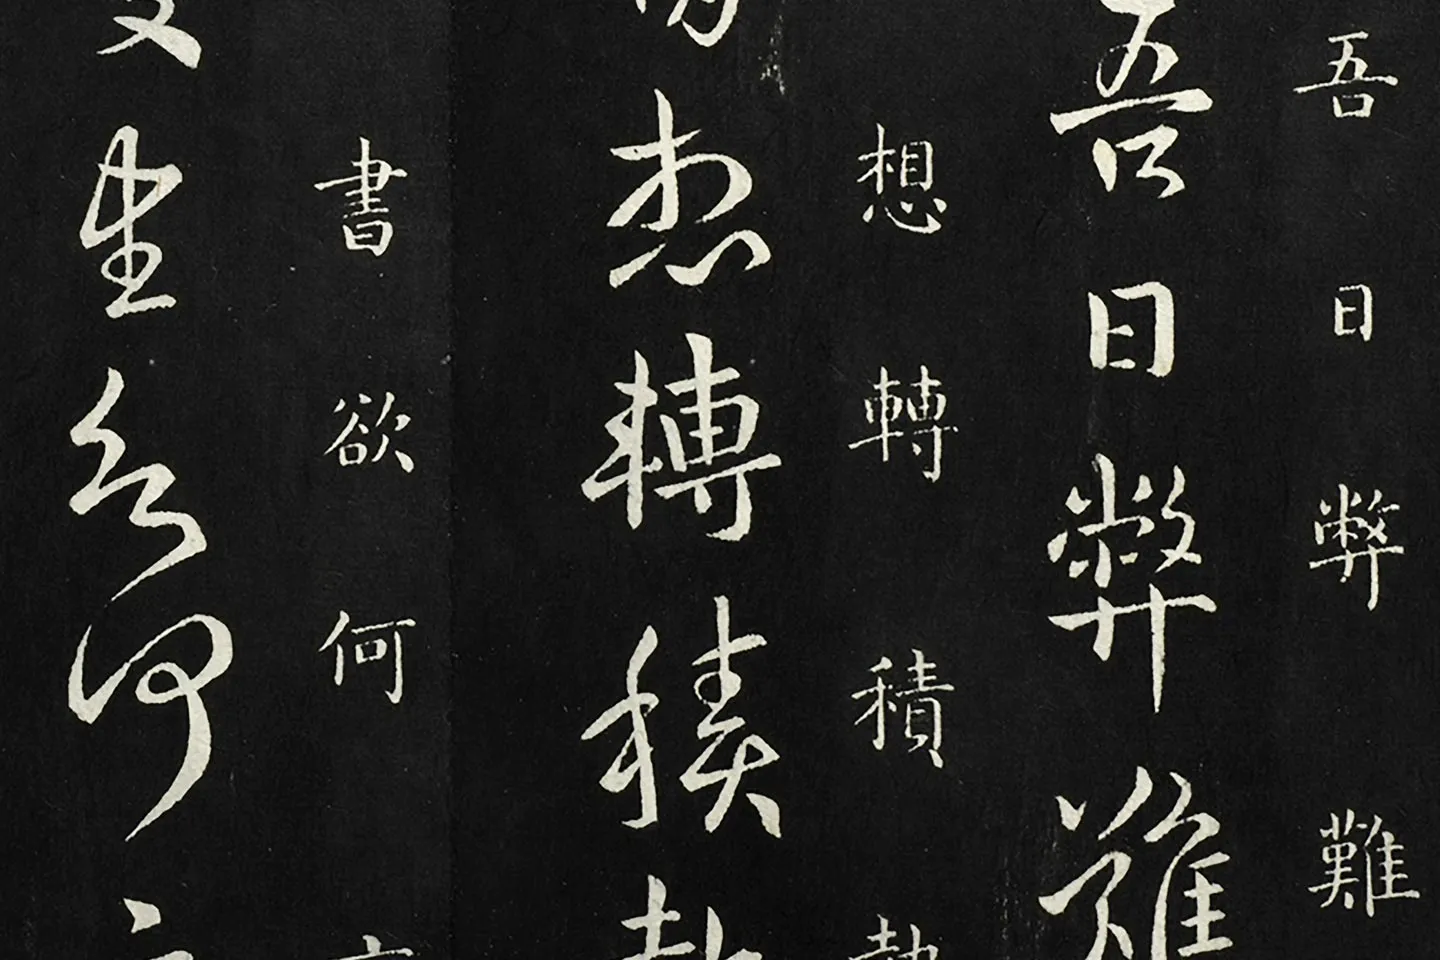 吾日弊難
吾日弊難
想轉積執
想轉積執
書欲何
書欲何